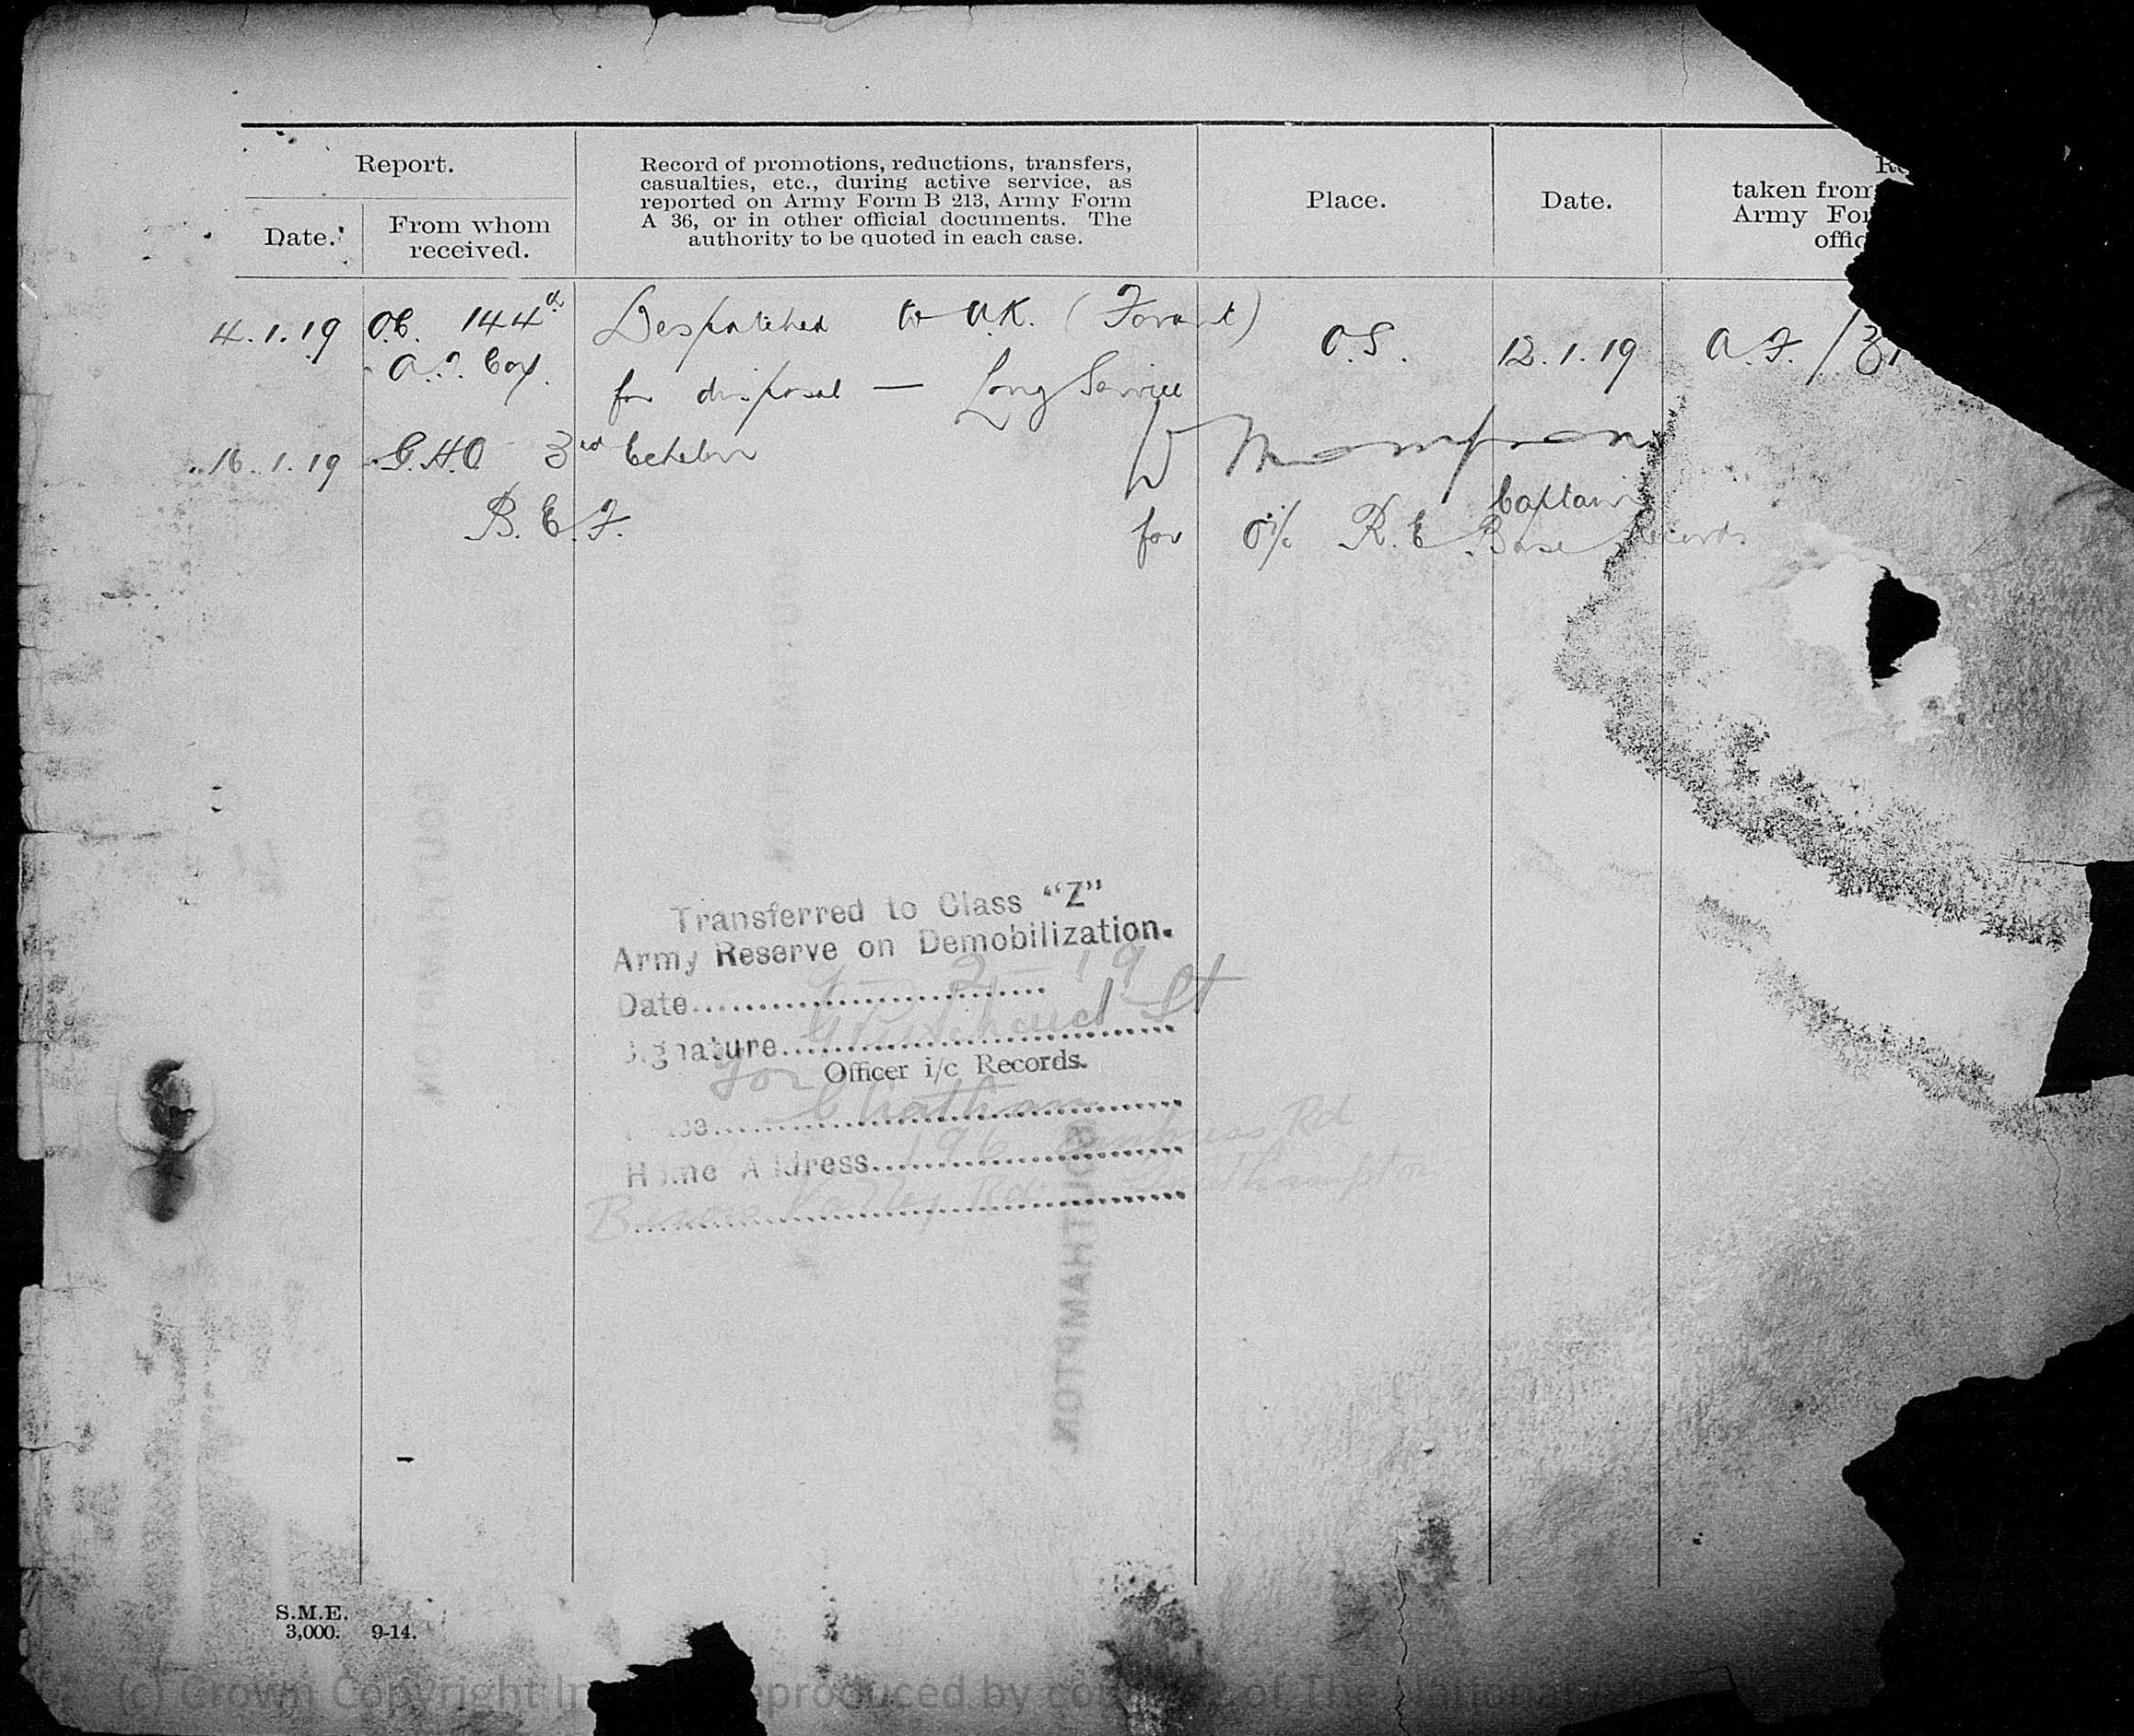 Report.
Record of promotions, reductions, transfers,
casualties, etc., during active service, as
reported on Army Form B 213, Army Form
A 36, or in other official documents. The
authority to be quoted in each case.
Place.
Date.
taken from
Army For
offic
Date.
From whom
received.
4.1.19 O.C. 144th Despatched to U.K. (Fovant) O.S. 12.1.19 A.F./Z
A.T. Coy. for disposal — Long Service
16.1.19 G.H.Q 3rd Echelon
Captain
B.E.F. for O i/c R.E Base Records
Transferred to Class "Z"
Army Reserve on Demobilization.
Date 2 - 19
Signature
for Officer i/c Records.
Chatham
Home Address 196 Rd
Valley Rd Southampton
SOUTHAMPTON.
S.M.E.
3,000. 9-14.
(c) Crown Copyright reproduced by of The National